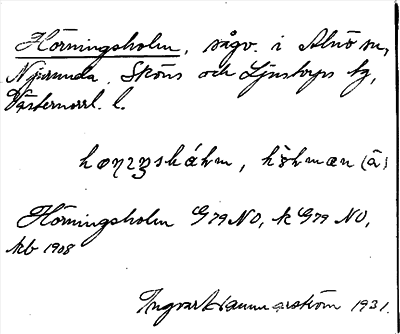 Hörningsholm, sågv. i Alnö sn,
Njurunda, Sköns och Ljustorps tg,
Västernorrl. l.
Hörningsholm G79NO, k G79 NO,
kb 1908
Ingvar Hammarström 1931.